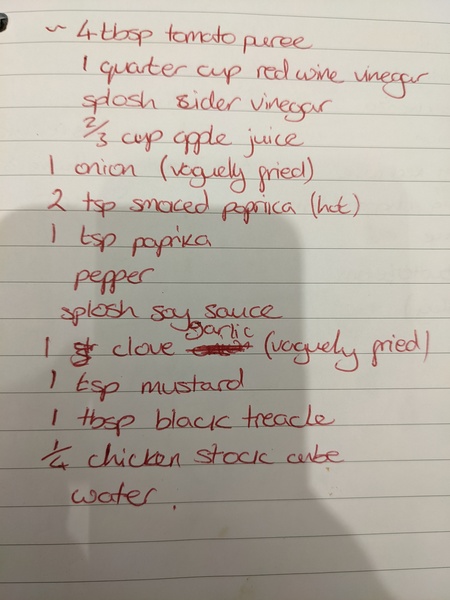 ~ 4 tbsp tomato puree
1 quarter cup red wine vinegar
splosh sider vinegar
2/3 cup apple juice
1 onion (vaguely fried)
2 tsp smoced paprika (hot)
1 tsp paprika
pepper
splosh soy sauce
1 clove garlic (vaguely fried)
1 tsp mustard
1 tbsp black treacle
1/4 chicken stock cube
water.